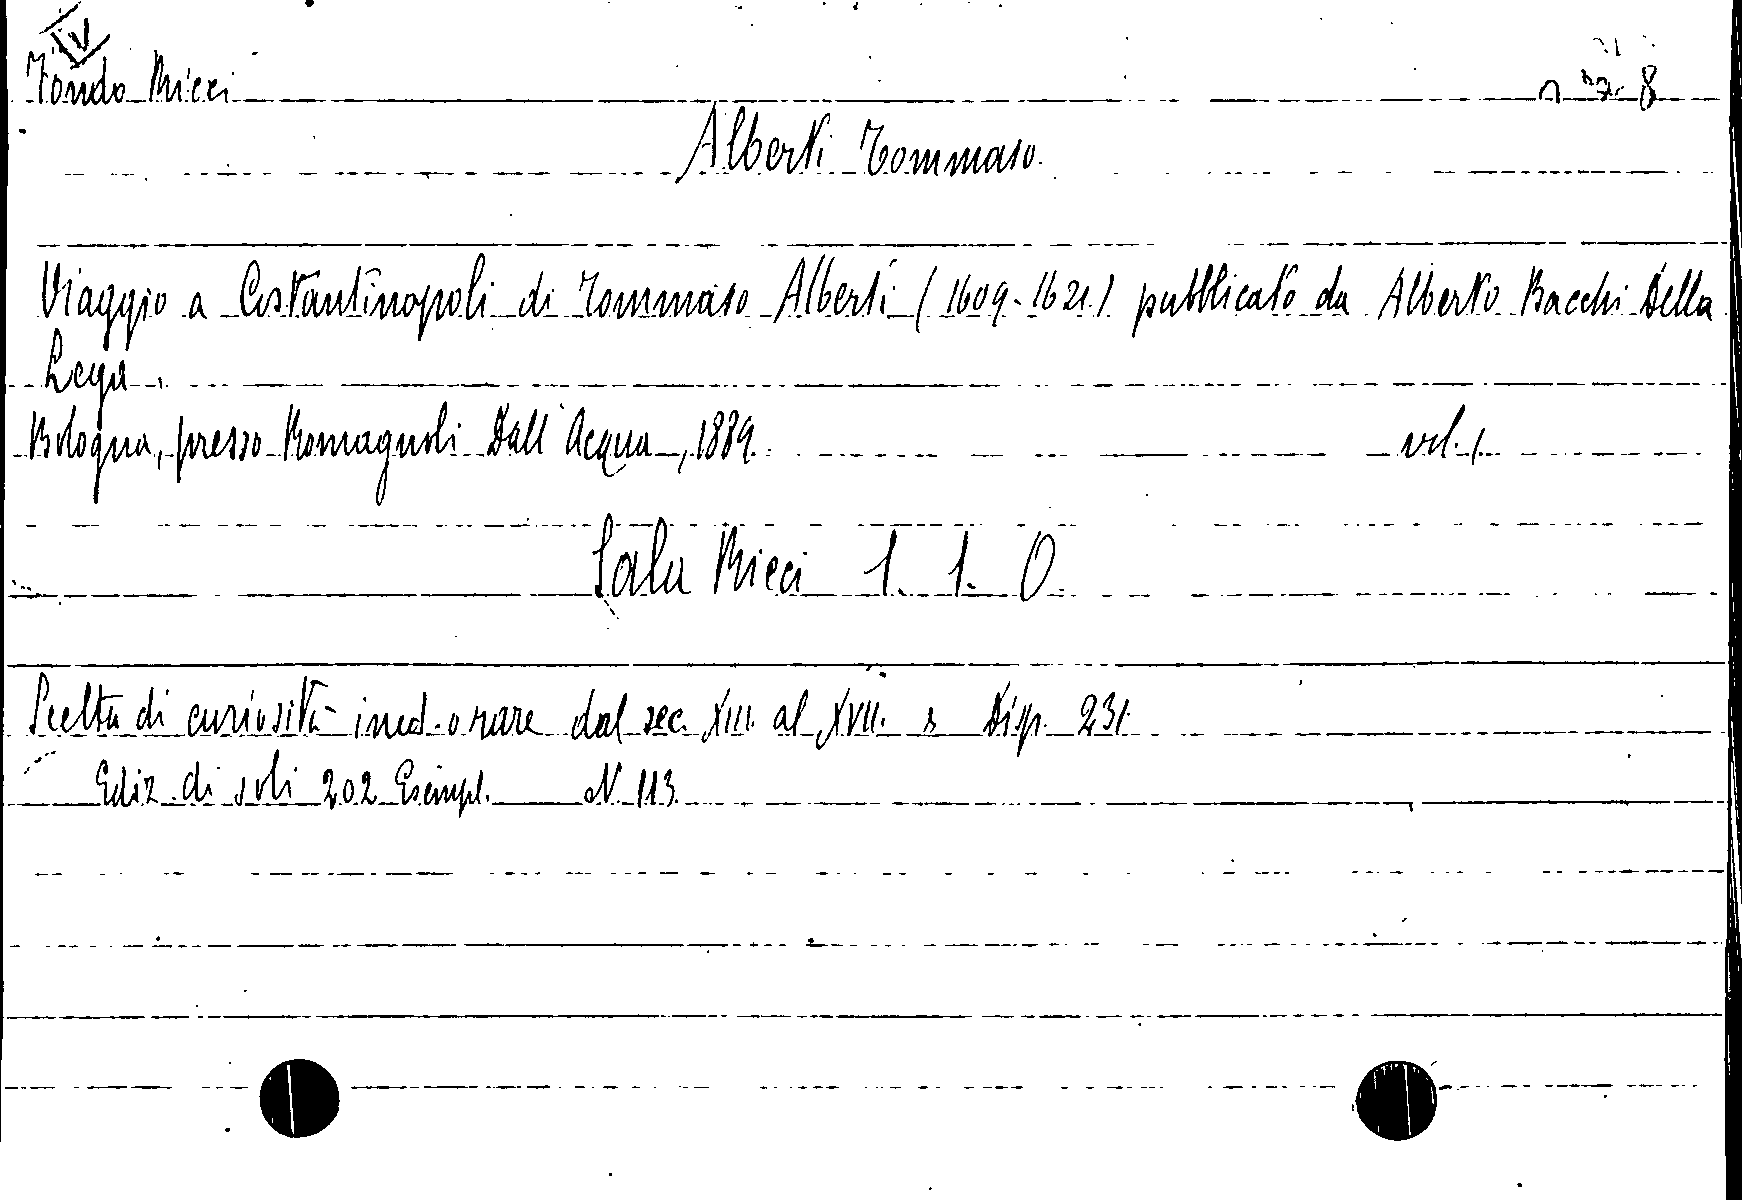 IV
Fondo Ricci
n 8
Alberti Tommaso.
Viaggio a Costantinopoli di Tommaso Alberti (1609-1621.) pubblicato da Alberto Bacchi Della
Lega.
Bologna, presso Romagnoli Dall'Acqua, 1889. vol. 1.
Sala Ricci 1. 1. O.
Scelta di curiosità ined. o rare dal sec. XIII. al XVII. Disp. 231.
Ediz. di soli 202 Esempl. N. 113.